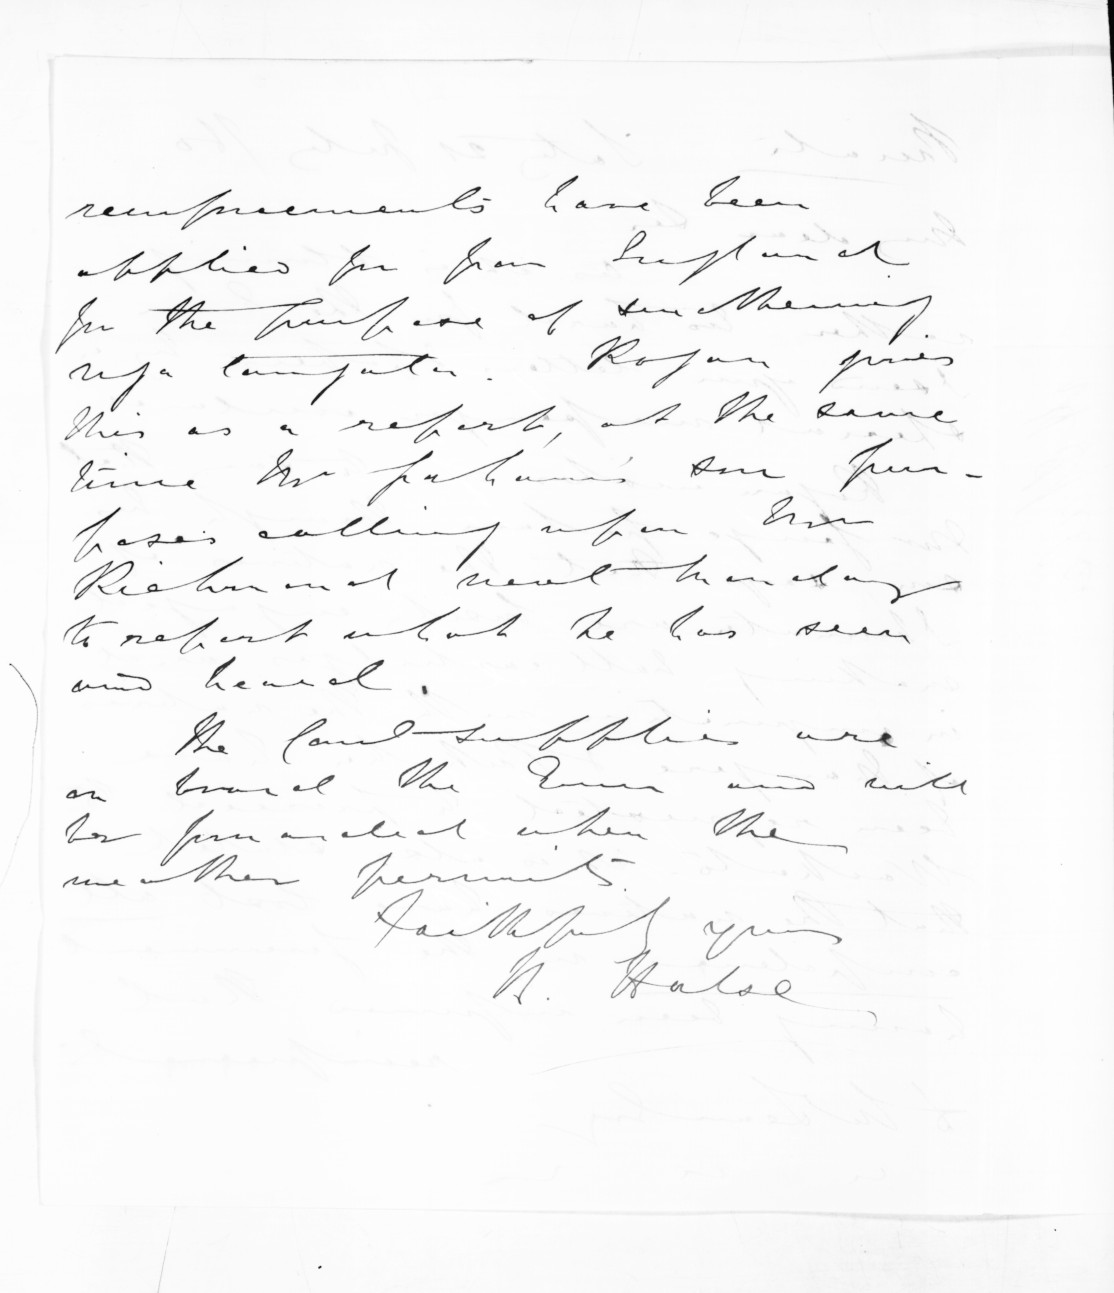 reinforcements have been
applied for from England
for the purpose of smothering
nga tangata. Rogan gives
this as a report, at the same
time Mr Graham's son pur-
poses calling upon Mr
Richmond next Monday
to report what he has seen
and heard.
The Cout supplies are
on board the Emma and will
be forwarded when the
weather permits.
Faithfully yours
H. Halse